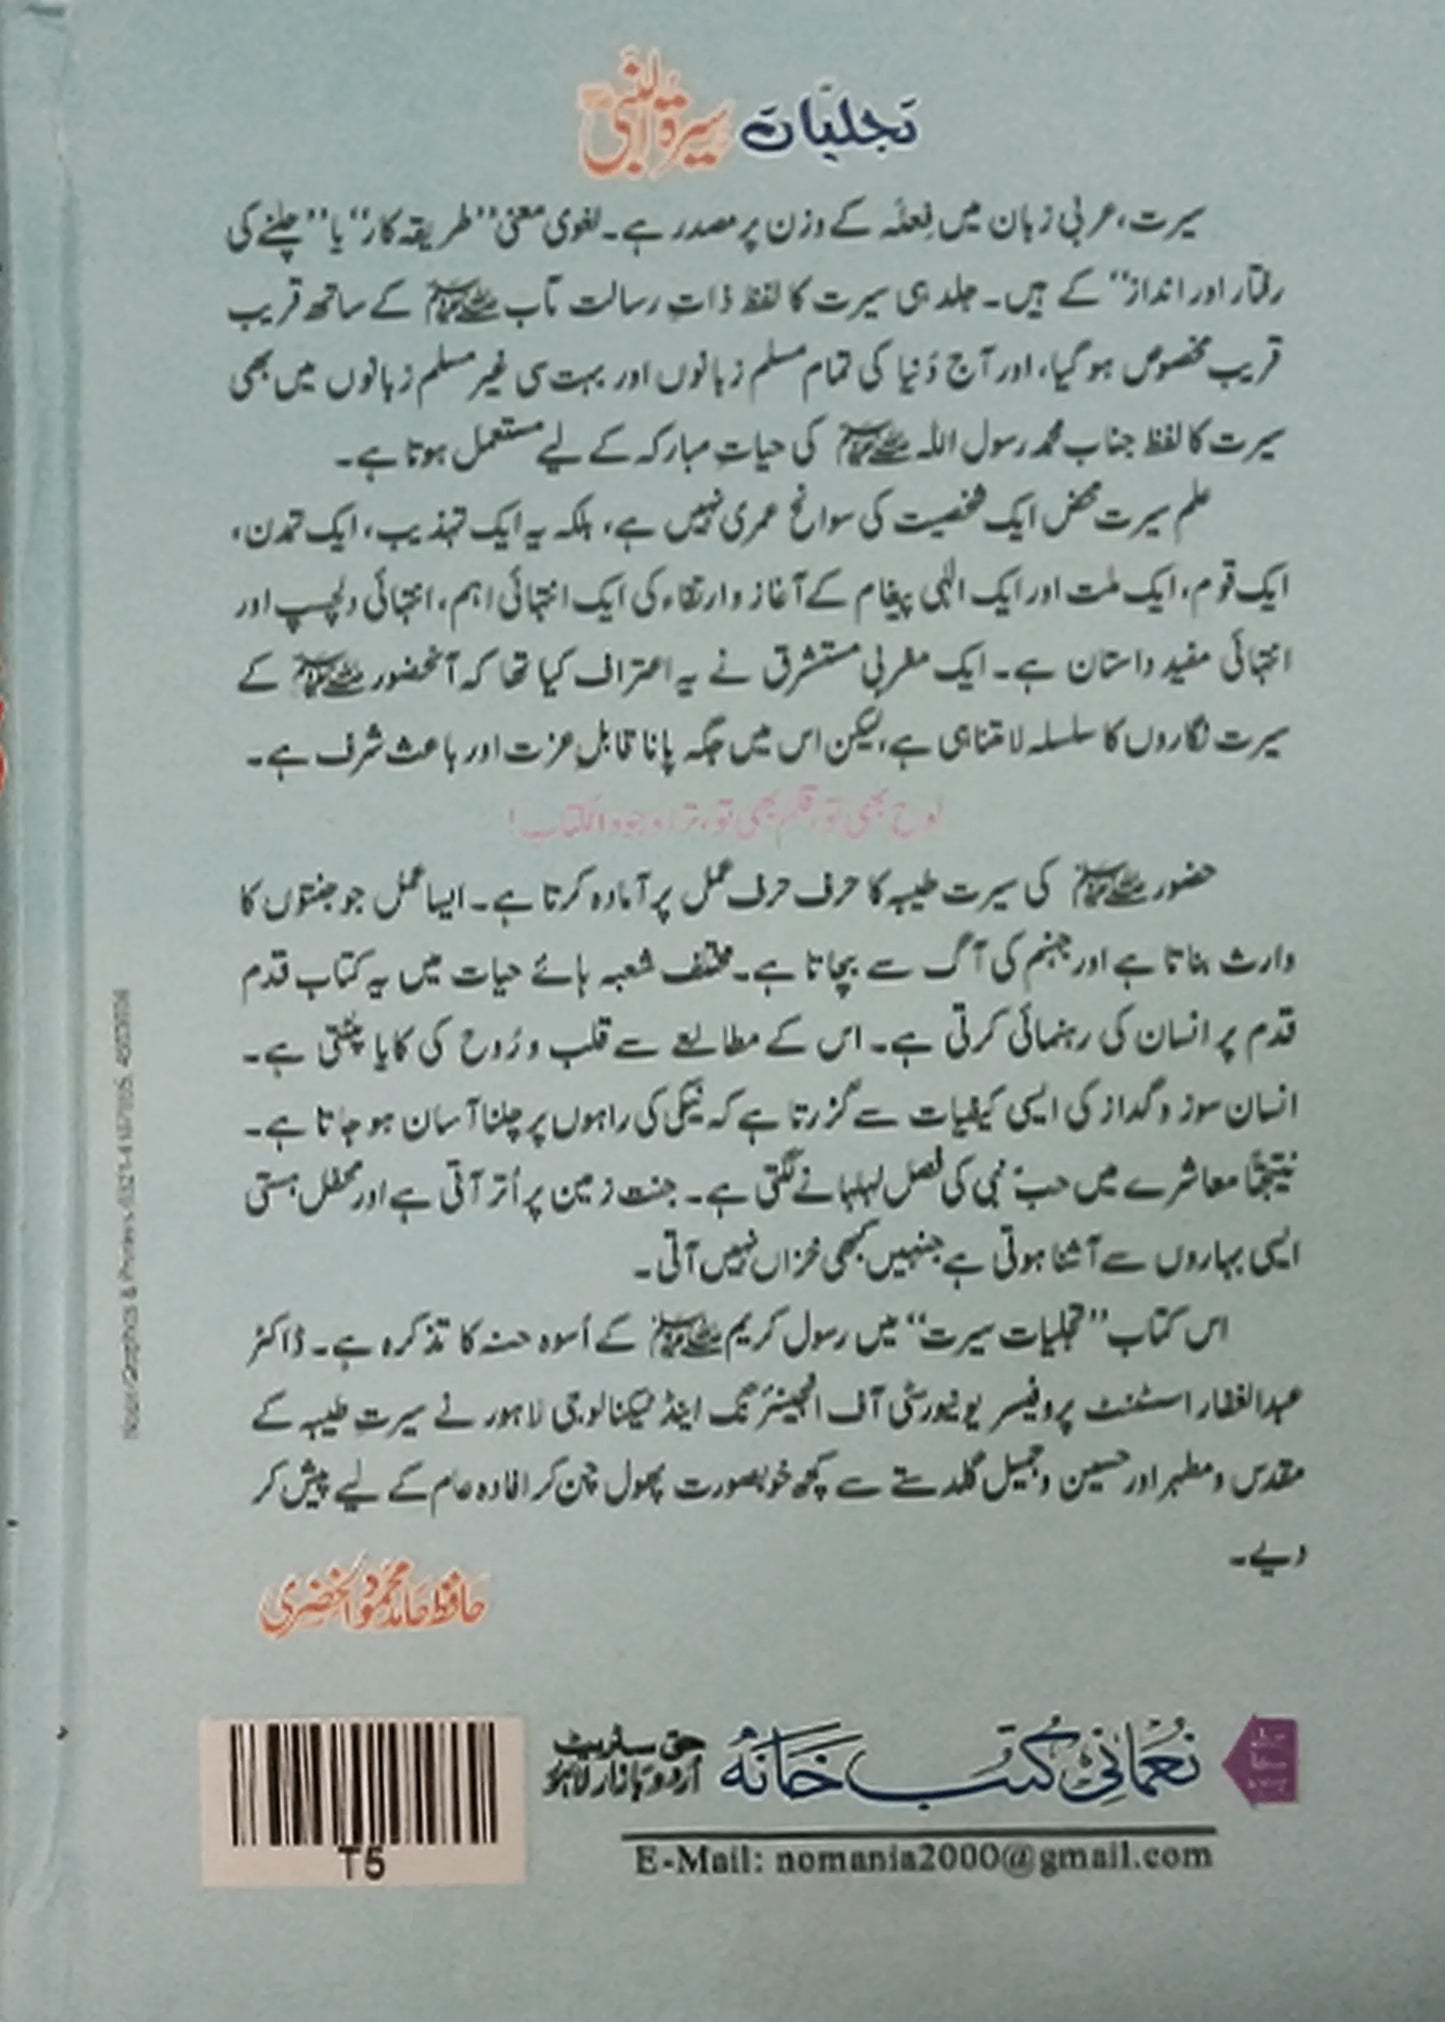 تجلیات سیرۃ النبی
سیرت، عربی زبان میں فِعلَہ کے وزن پر مصدر ہے۔ لغوی معنی ’’طریقہ کار‘‘ یا ’’چلنے کی
رفتار اور انداز‘‘ کے ہیں۔ جلد ہی سیرت کا لفظ ذاتِ رسالت مآب ﷺ کے ساتھ قریب
قریب مخصوص ہو گیا، اور آج دُنیا کی تمام مسلم زبانوں اور بہت سی غیر مسلم زبانوں میں بھی
سیرت کا لفظ جناب محمد رسول اللہ ﷺ کی حیاتِ مبارکہ کے لیے مستعمل ہوتا ہے۔
علم سیرت محض ایک شخصیت کی سوانح عمری نہیں ہے، بلکہ یہ ایک تہذیب، ایک تمدن،
ایک قوم، ایک ملت اور ایک الٰہی پیغام کے آغاز و ارتقاء کی ایک انتہائی اہم، انتہائی دلچسپ اور
انتہائی مفید داستان ہے۔ ایک مغربی مستشرق نے یہ اعتراف کیا تھا کہ آنحضور ﷺ کے
سیرت نگاروں کا سلسلہ لامتناہی ہے، لیکن اس میں جگہ پانا قابلِ عزت اور باعث شرف ہے۔
لوح بھی تو، قلم بھی تو، ترا وجود الکتاب!
حضور ﷺ کی سیرت طیبہ کا حرف حرف عمل پر آمادہ کرتا ہے۔ ایسا عمل جو جنتوں کا
وارث بناتا ہے اور جہنم کی آگ سے بچاتا ہے۔ مختلف شعبہ ہائے حیات میں یہ کتاب قدم
قدم پر انسان کی رہنمائی کرتی ہے۔ اس کے مطالعے سے قلب و رُوح کی کایا پلٹتی ہے۔
انسان سوز و گداز کی ایسی کیفیات سے گزرتا ہے کہ نیکی کی راہوں پر چلنا آسان ہو جاتا ہے۔
نتیجتاً معاشرے میں حبِّ نبی کی فصل لہلہانے لگتی ہے۔ جنت زمین پر اُتر آتی ہے اور محفل ہستی
ایسی بہاروں سے آشنا ہوتی ہے جنہیں کبھی خزاں نہیں آتی۔
اس کتاب ’’تجلیات سیرت‘‘ میں رسول کریم ﷺ کے اُسوہ حسنہ کا تذکرہ ہے۔ ڈاکٹر
عبدالغفار اسسٹنٹ پروفیسر یونیورسٹی آف انجینئرنگ اینڈ ٹیکنالوجی لاہور نے سیرتِ طیبہ کے
مقدس و مطہر اور حسین و جمیل گلدستے سے کچھ خوبصورت پھول چن کر افادہ عام کے لیے پیش کر
دیے۔
حافظ حامد محمود الخضری
نعمانی کتب خانہ
حق سٹریٹ
اردو بازار لاہور
E-Mail: nomania2000@gmail.com
T5
Graphics & Printers